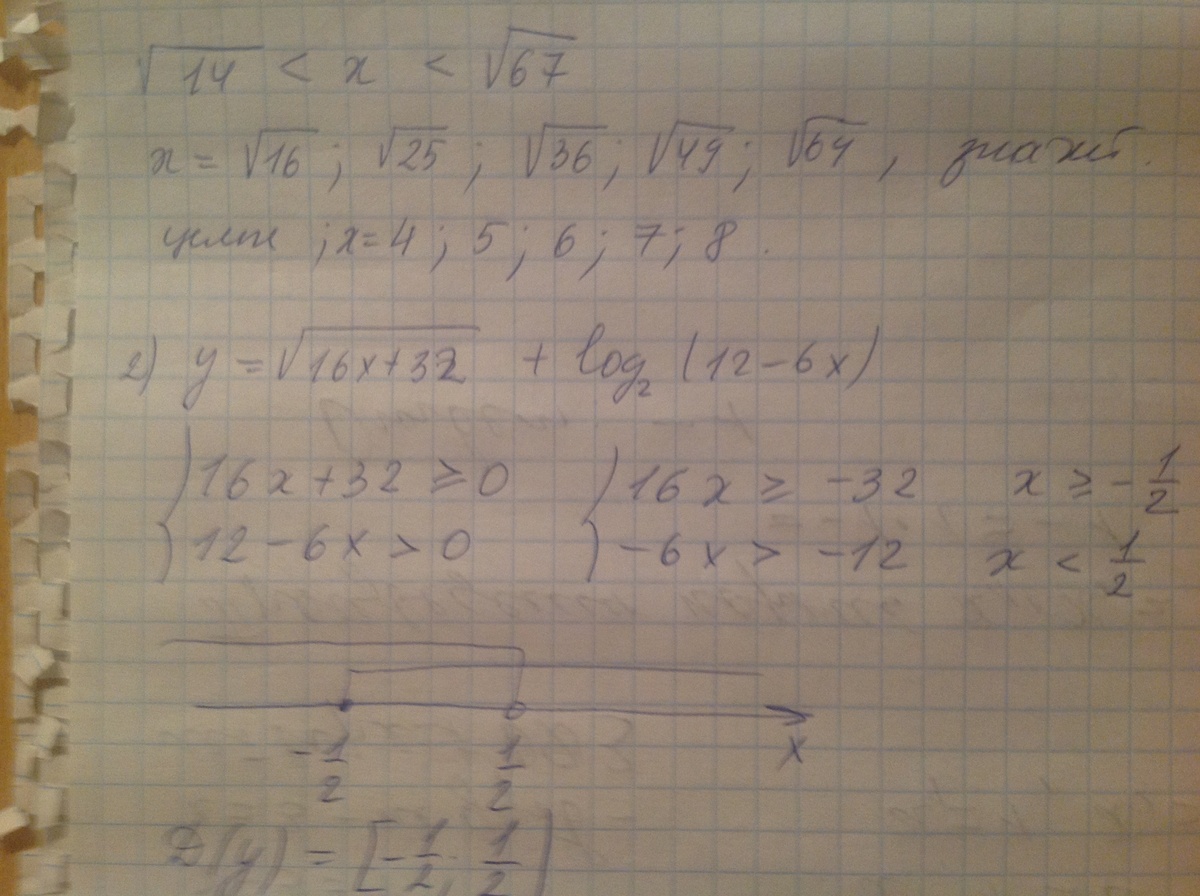 √14 < x < √67
x = √16 ; √25 ; √36 ; √49 ; √64 , значит
целые ; x = 4 ; 5 ; 6 ; 7 ; 8 .
2) y = √16x+32 + log₂ (12 − 6x)
{ 16x + 32 ≥ 0 { 16x ≥ −32 x ≥ −1/2
{ 12 − 6x > 0 { −6x > −12 x < 1/2
−1/2 1/2 x
D(y) = [−1/2 ; 1/2)